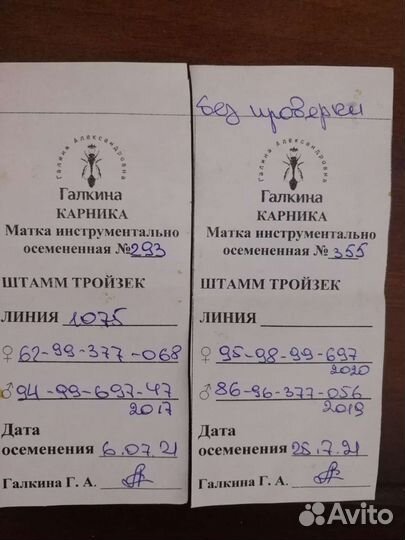 Галина Александровна
Галкина
КАРНИКА
Матка инструментально
осемененная № 293
ШТАММ ТРОЙЗЕК
ЛИНИЯ 1075
♀ 62-99-377-068
♂ 94-99-697-47
2017
Дата
осеменения 6.07.21
Галкина Г. А.
Без проверки
Галина Александровна
Галкина
КАРНИКА
Матка инструментально
осемененная № 355
ШТАММ ТРОЙЗЕК
ЛИНИЯ
♀ 95-98-99-697
2020
♂ 86-96-377-056
2019
Дата
осеменения 28.7.21
Галкина Г. А.
Avito